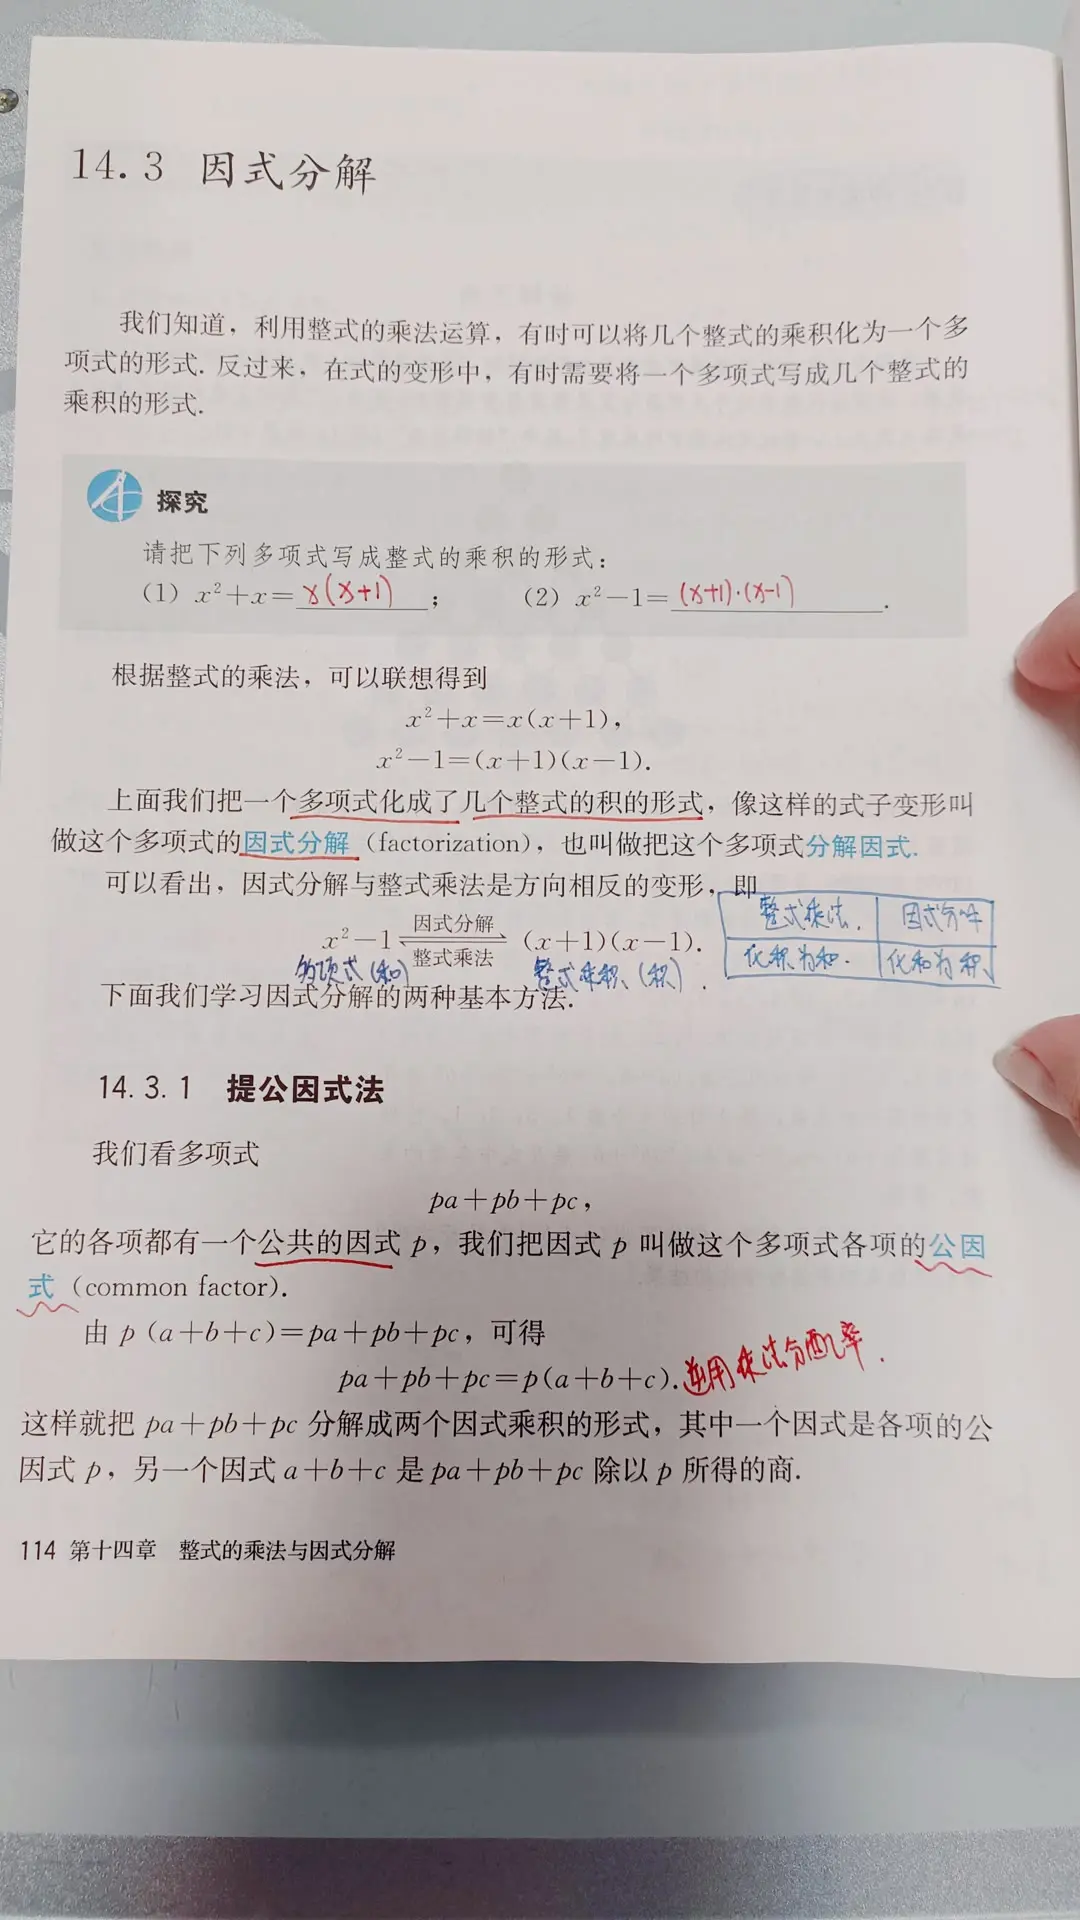 14.3 因式分解
我们知道，利用整式的乘法运算，有时可以将几个整式的乘积化为一个多
项式的形式. 反过来，在式的变形中，有时需要将一个多项式写成几个整式的
乘积的形式.
探究
请把下列多项式写成整式的乘积的形式：
（1）x²+x= x(x+1) ； （2）x²-1= (x+1)·(x-1) .
根据整式的乘法，可以联想得到
x²+x=x(x+1),
x²-1=(x+1)(x-1).
上面我们把一个多项式化成了几个整式的积的形式，像这样的式子变形叫
做这个多项式的因式分解（factorization），也叫做把这个多项式分解因式.
可以看出，因式分解与整式乘法是方向相反的变形，即
整式乘法. 因式分解
因式分解
x²-1 (x+1)(x-1).
整式乘法
化积为和. 化和为积
多项式(和) 整式乘积(积).
下面我们学习因式分解的两种基本方法.
14.3.1 提公因式法
我们看多项式
pa+pb+pc,
它的各项都有一个公共的因式 p，我们把因式 p 叫做这个多项式各项的公因
式（common factor）.
由 p(a+b+c)=pa+pb+pc，可得
pa+pb+pc=p(a+b+c). 逆用乘法分配率.
这样就把 pa+pb+pc 分解成两个因式乘积的形式，其中一个因式是各项的公
因式 p，另一个因式 a+b+c 是 pa+pb+pc 除以 p 所得的商.
114 第十四章 整式的乘法与因式分解